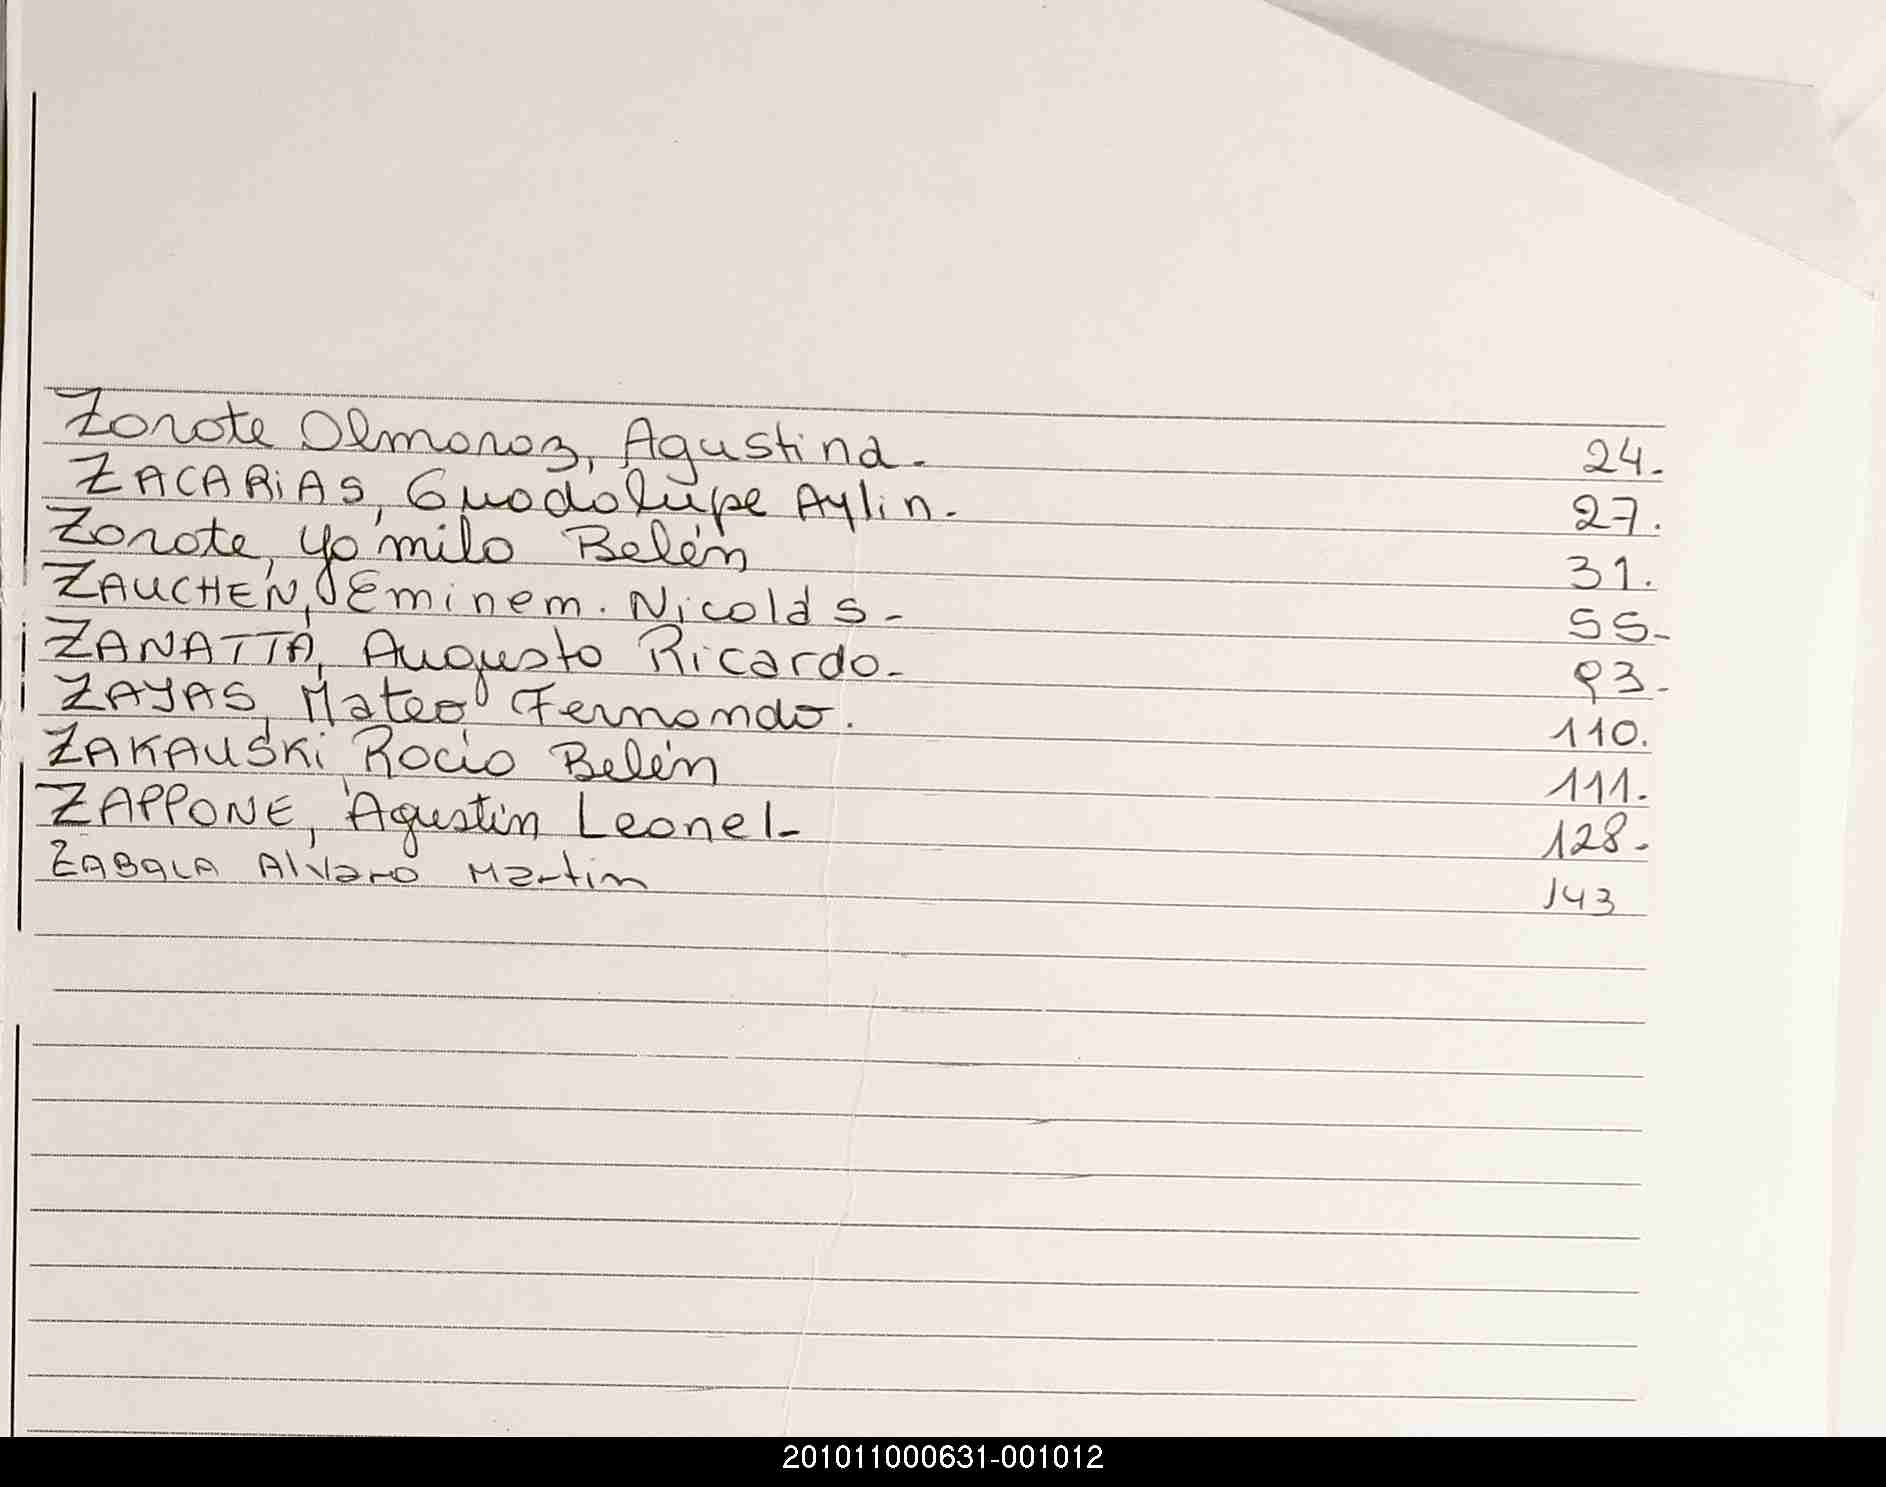 Zarate Almaraz, Agustina. 24.
ZACARiAS, Guadalupe Aylin. 27.
Zarate, Yamila Belén 31.
ZAUCHEN, Eminem. Nicolás- 55-
ZANATTA, Augusto Ricardo- 93-
ZAYAS, Mateo Fernando. 110.
ZAKAUSKi, Rocio Belén 111.
ZAPPONE, Agustin Leonel- 128-
ZABALA Alvaro Martin 143
201011000631-001012